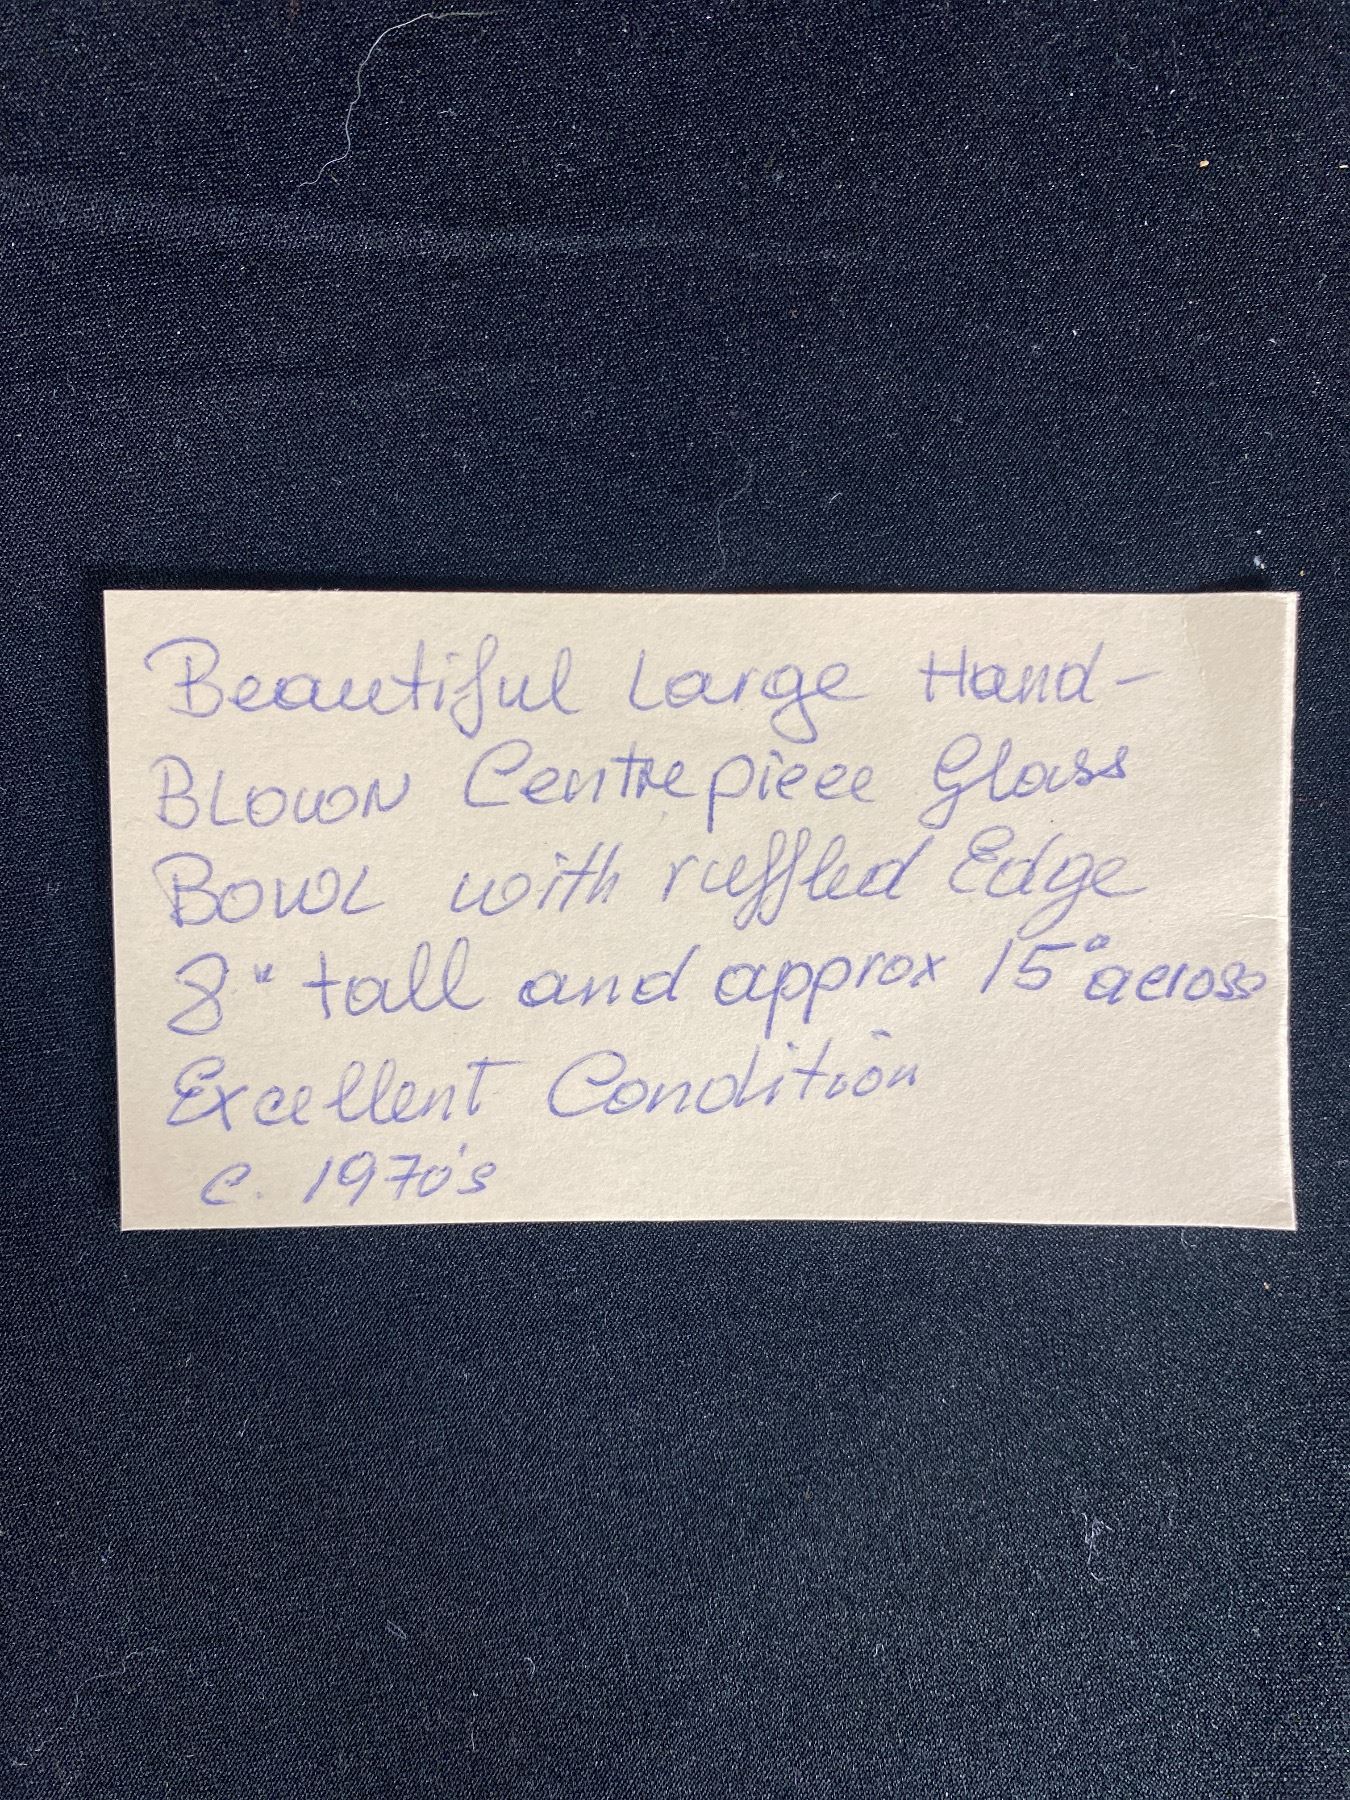 Beautiful Large Hand-
Blown Centrepiece Glass
Bowl with ruffled Edge
8" tall and approx 15" across
Excellent Condition
c. 1970's